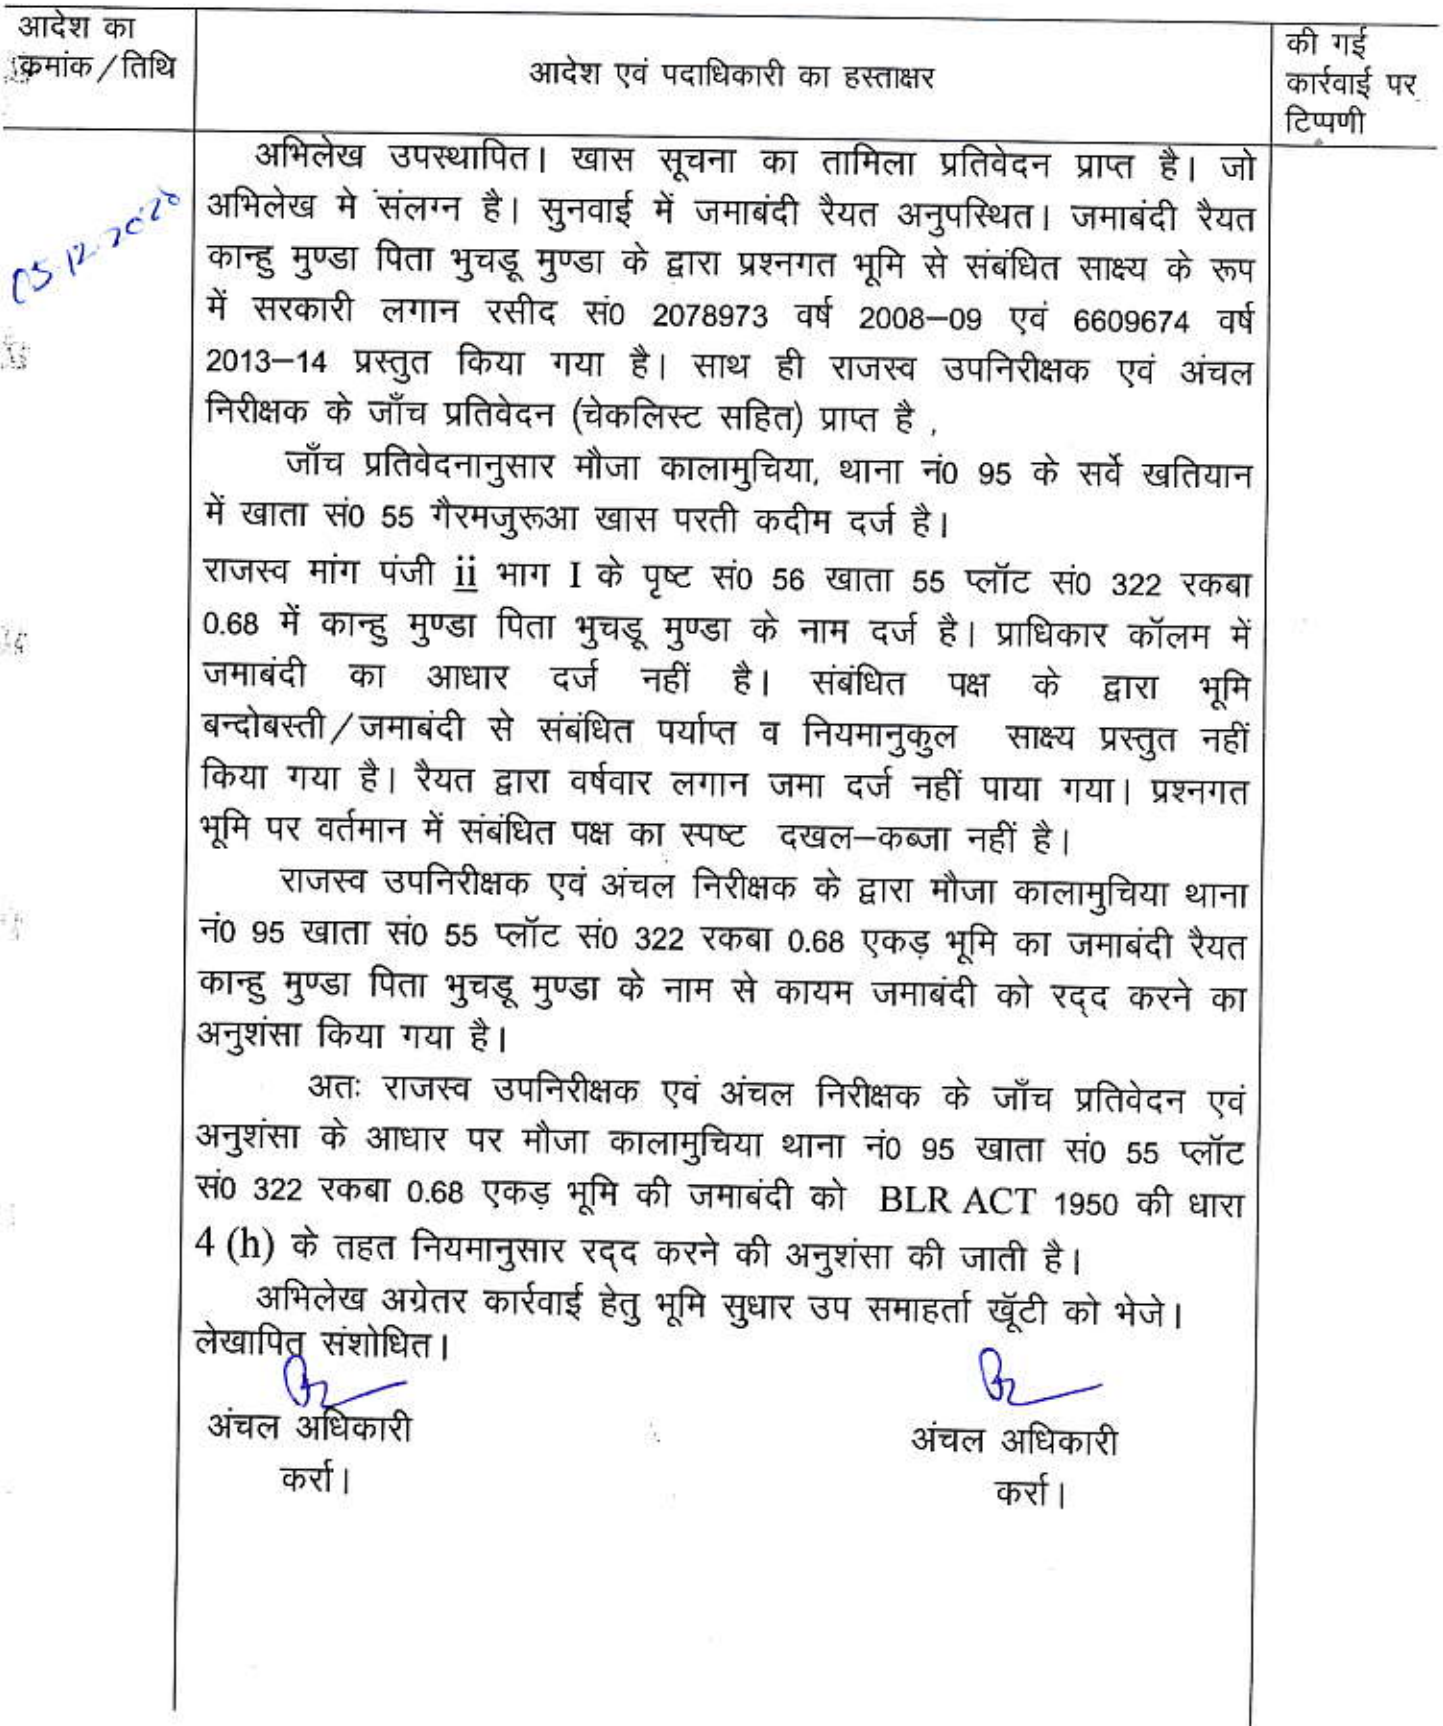 आदेश का
क्रमांक/तिथि
आदेश एवं पदाधिकारी का हस्ताक्षर
की गई
कार्रवाई पर
टिप्पणी
05.12.2020
अभिलेख उपस्थापित। खास सूचना का तामिला प्रतिवेदन प्राप्त है। जो
अभिलेख मे संलग्न है। सुनवाई में जमाबंदी रैयत अनुपस्थित। जमाबंदी रैयत
कान्हु मुण्डा पिता भुचडू मुण्डा के द्वारा प्रश्नगत भूमि से संबंधित साक्ष्य के रूप
में सरकारी लगान रसीद सं0 2078973 वर्ष 2008–09 एवं 6609674 वर्ष
2013–14 प्रस्तुत किया गया है। साथ ही राजस्व उपनिरीक्षक एवं अंचल
निरीक्षक के जाँच प्रतिवेदन (चेकलिस्ट सहित) प्राप्त है ,
जाँच प्रतिवेदनानुसार मौजा कालामुचिया, थाना नं0 95 के सर्वे खतियान
में खाता सं0 55 गैरमजुरूआ खास परती कदीम दर्ज है।
राजस्व मांग पंजी ii भाग I के पृष्ट सं0 56 खाता 55 प्लॉट सं0 322 रकबा
0.68 में कान्हु मुण्डा पिता भुचडू मुण्डा के नाम दर्ज है। प्राधिकार कॉलम में
जमाबंदी का आधार दर्ज नहीं है। संबंधित पक्ष के द्वारा भूमि
बन्दोबस्ती/जमाबंदी से संबंधित पर्याप्त व नियमानुकुल साक्ष्य प्रस्तुत नहीं
किया गया है। रैयत द्वारा वर्षवार लगान जमा दर्ज नहीं पाया गया। प्रश्नगत
भूमि पर वर्तमान में संबंधित पक्ष का स्पष्ट दखल–कब्जा नहीं है।
राजस्व उपनिरीक्षक एवं अंचल निरीक्षक के द्वारा मौजा कालामुचिया थाना
नं0 95 खाता सं0 55 प्लॉट सं0 322 रकबा 0.68 एकड़ भूमि का जमाबंदी रैयत
कान्हु मुण्डा पिता भुचडू मुण्डा के नाम से कायम जमाबंदी को रद्द करने का
अनुशंसा किया गया है।
अतः राजस्व उपनिरीक्षक एवं अंचल निरीक्षक के जाँच प्रतिवेदन एवं
अनुशंसा के आधार पर मौजा कालामुचिया थाना नं0 95 खाता सं0 55 प्लॉट
सं0 322 रकबा 0.68 एकड़ भूमि की जमाबंदी को BLR ACT 1950 की धारा
4 (h) के तहत नियमानुसार रद्द करने की अनुशंसा की जाती है।
अभिलेख अग्रेतर कार्रवाई हेतु भूमि सुधार उप समाहर्ता खूँटी को भेजे।
लेखापित संशोधित।
अंचल अधिकारी
कर्रा।
अंचल अधिकारी
कर्रा।